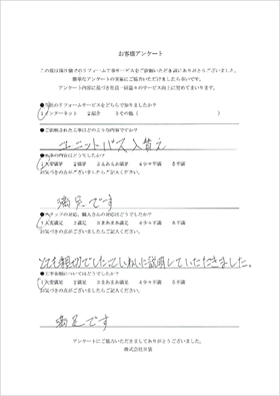 お客様アンケート
この度は弊社のリフォーム工事サービスをご依頼いただき誠にありがとうございました。
簡単なアンケートの実施にご協力いただけましたら幸いです。
アンケート内容に基づき社員一同益々のサービス向上に努めてまいります。
リフォームサービスをどちらで知りましたか?
1インターネット 2紹介 3その他(
●ご依頼された工事はどのような内容ですか?
ユニットバス入替え
の内容はどうでしたか?
1大変満足 2満足 3まあまあ満足 4少々不満 5不満
お気づきの点がございましたらご記入ください。
満足です
●スタッフの対応、職人さんの対応はどうでしたか?
1大変満足 2満足 3まあまあ満足 4少々不満 5不満
お気づきの点がございましたらご記入ください。
とても親切でした。ていねいに説明していただきました。
●工事金額についてはどうでしたか?
1大変満足 2満足 3まあまあ満足 4少々不満 5不満
お気づきの点がございましたらご記入ください。
満足です
アンケートにご協力いただきましてありがとうございました。
株式会社